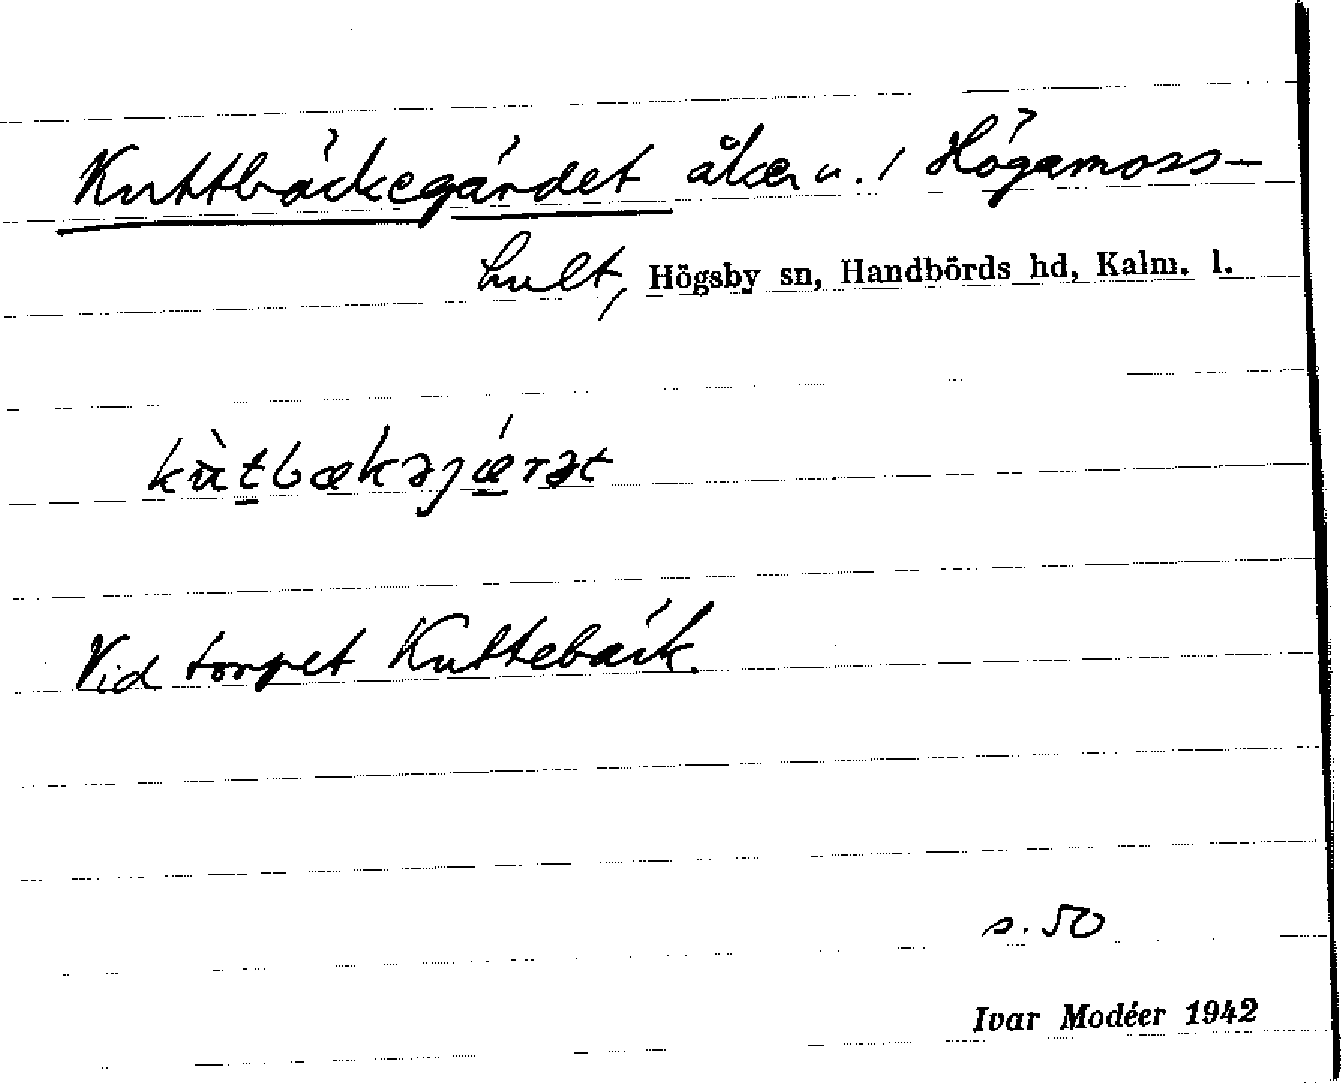 Kuttbäckegärdet åker u. / Högamoss-
hult, Högsby sn, Handbörds hd, Kalm. l.
kùtbækəjǽrət
Vid torpet Kuttebäck.
s. 50
Ivar Modéer 1942